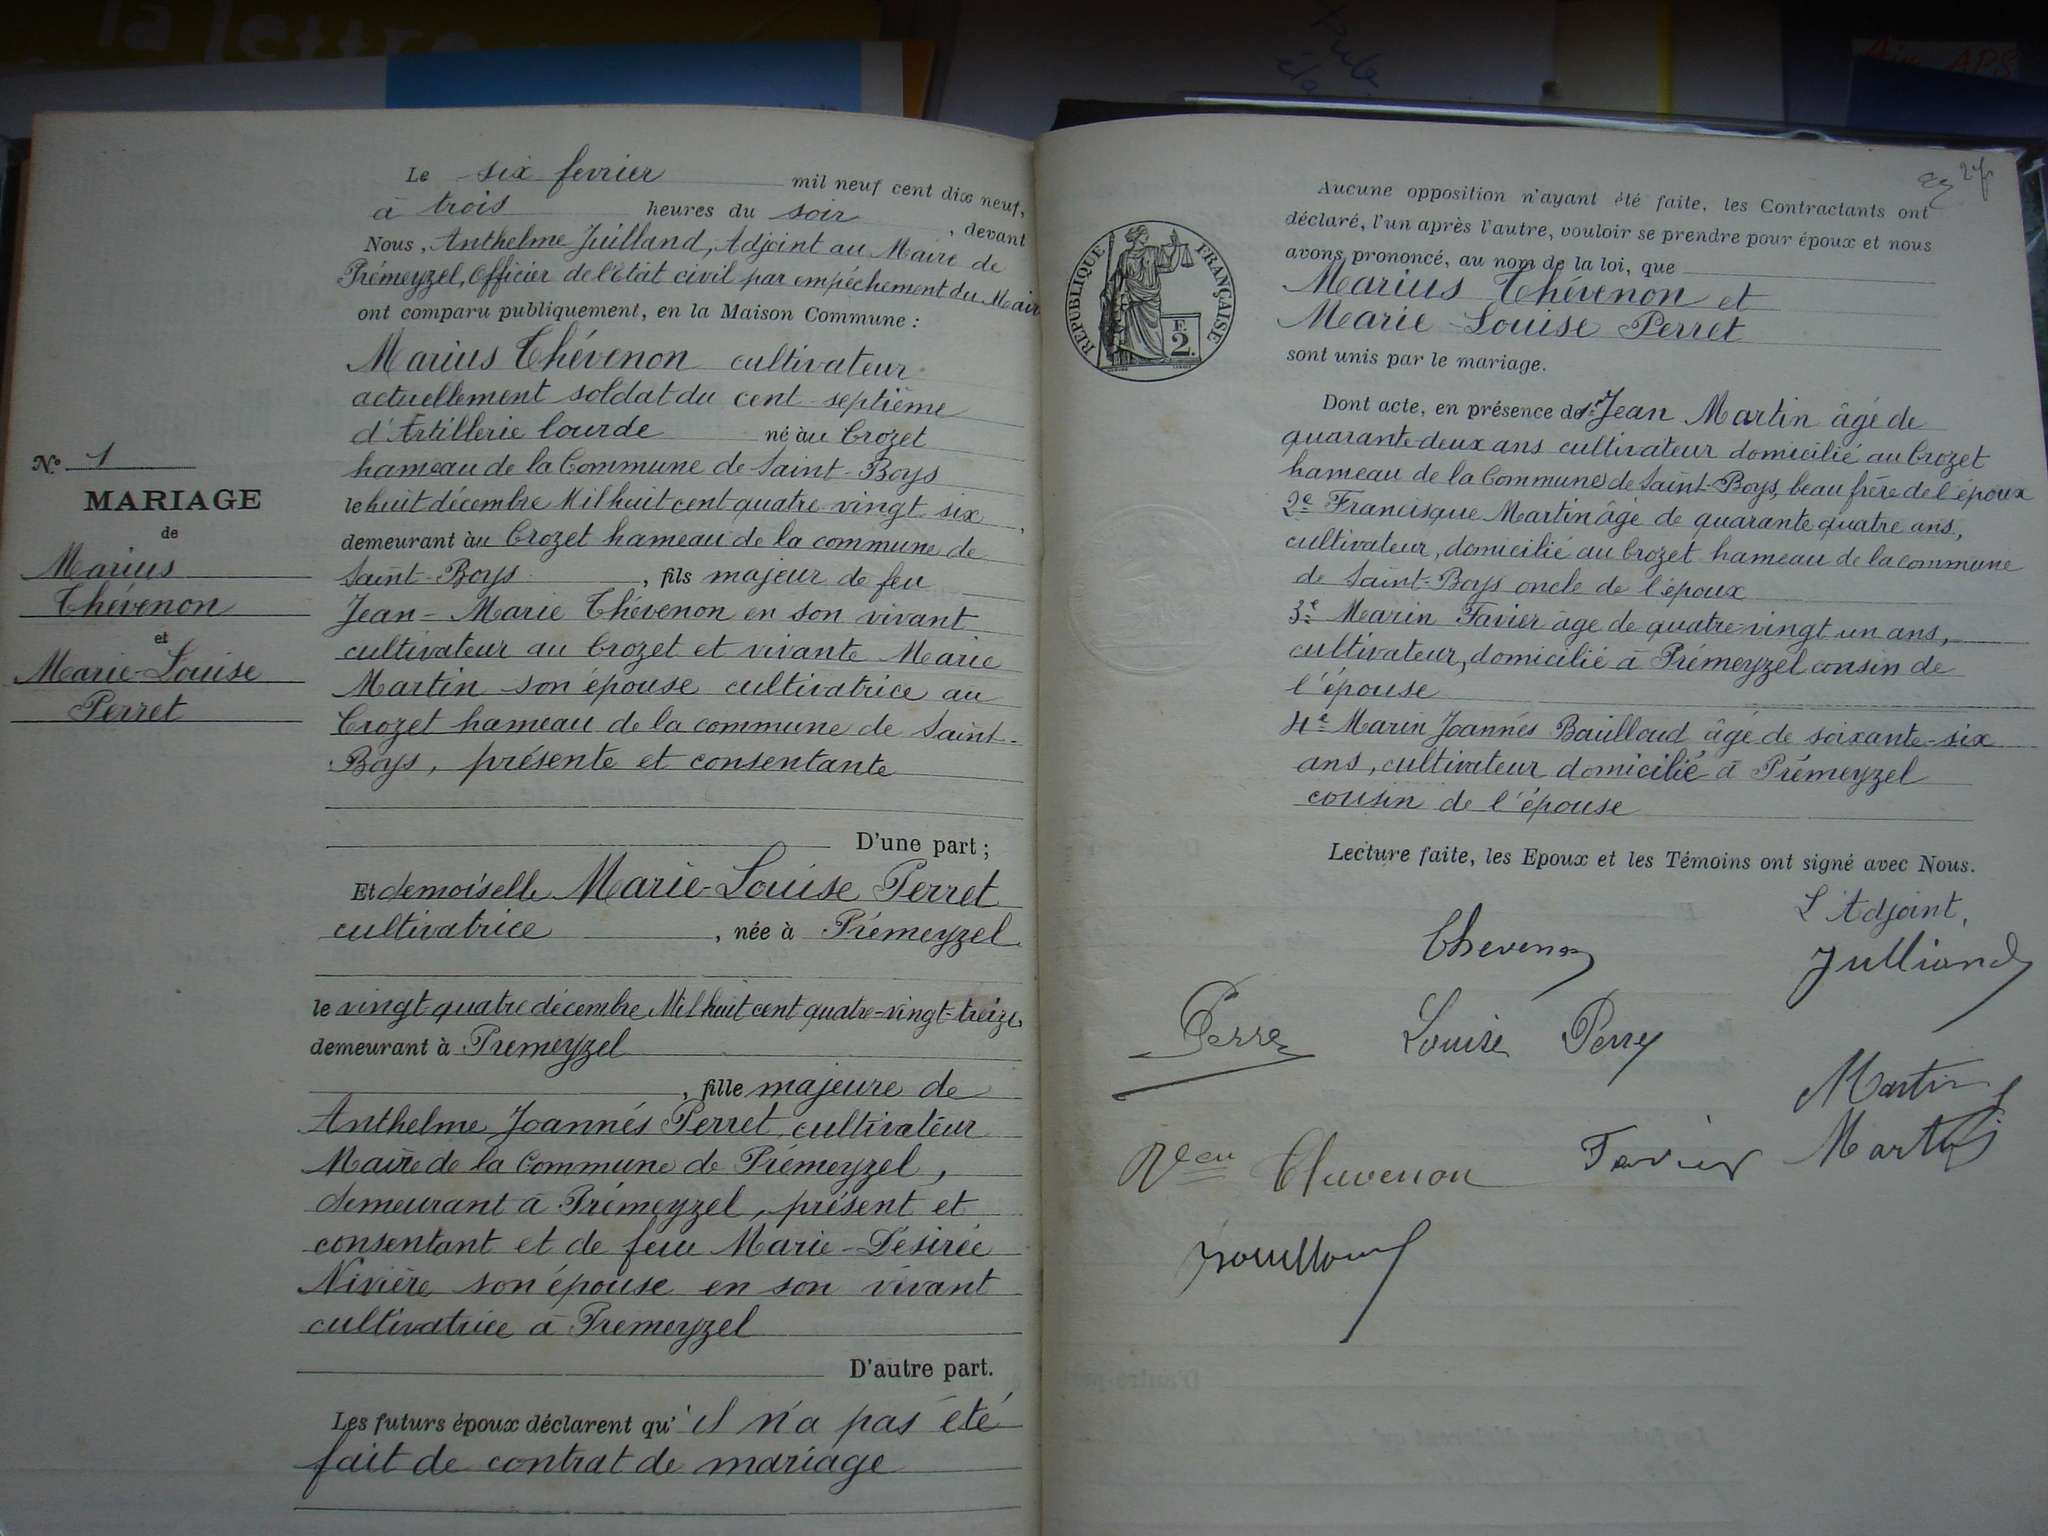 la lettre
Le six fevrier mil neuf cent dix neuf,
à trois heures du soir, devant
Nous, Anthelme Juilland, Adjoint au Maire de
Prémeyzel, Officier de l'Etat civil par empêchement du Maire
ont comparu publiquement, en la Maison Commune :
Marius Thévenon cultivateur
actuellement soldat du cent septième
d'Artillerie lourde né au Crozet
hameau de la Commune de Saint-Boys
le huit décembre Mil huit cent quatre vingt six,
demeurant àu Crozet hameau de la commune de
Saint-Boys, fils majeur de feu
Jean-Marie Thévenon en son vivant
cultivateur au Crozet et vivante Marie
Martin son épouse cultivatrice au
Crozet hameau de la commune de Saint-
Boys, présente et consentante
D'une part ;
Et demoiselle Marie-Louise Perret
cultivatrice, née à Prémeyzel
le vingt-quatre décembre Mil huit cent quatre-vingt-treize,
demeurant à Premeyzel
, fille majeure de
Anthelme Joannés Perret cultivateur
Maire de la Commune de Prémeyzel,
demeurant à Prémeyzel, présent et
consentant et de feue Marie-Désirée
Nivière son épouse en son vivant
cultivatrice à Premeyzel
D'autre part.
Les futurs époux déclarent qu' il n'a pas été
fait de contrat de mariage
N.o 1
MARIAGE
de
Marius
Thévenon
et
Marie-Louise
Perret
27
RÉPUBLIQUE FRANÇAISE
F.
2.
Aucune opposition n'ayant été faite, les Contractants ont
déclaré, l'un après l'autre, vouloir se prendre pour époux et nous
avons prononcé, au nom de la loi, que
Marius Thévenon et
Marie-Louise Perret
sont unis par le mariage.
Dont acte, en présence de 1er Jean Martin âgé de
quarante-deux ans cultivateur domicilié au Crozet
hameau de la Commune de Saint-Boys, beau frère de l'époux
2e Francisque Martin âgé de quarante quatre ans,
cultivateur, domicilié au Crozet hameau de la commune
de Saint-Boys oncle de l'époux
3e Marin Favier âge de quatre-vingt un ans,
cultivateur, domicilié à Prémeyzel cousin de
l'épouse
4e Marin Joannés Bouilloud âgé de soixante-six
ans, cultivateur domicilié à Prémeyzel
cousin de l'épouse
Lecture faite, les Epoux et les Témoins ont signé avec Nous.
L'Adjoint,
Thevenon
Julliand
Perret
Louise Perret
Martin
Thevenon
Favier
Martin
Bouilloud